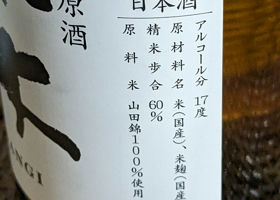 日本酒
アルコール分 17度
原材料名 米(国産)、米麹(国産
精米歩合 60%
原料米 山田錦100%使用
原酒
ANGI